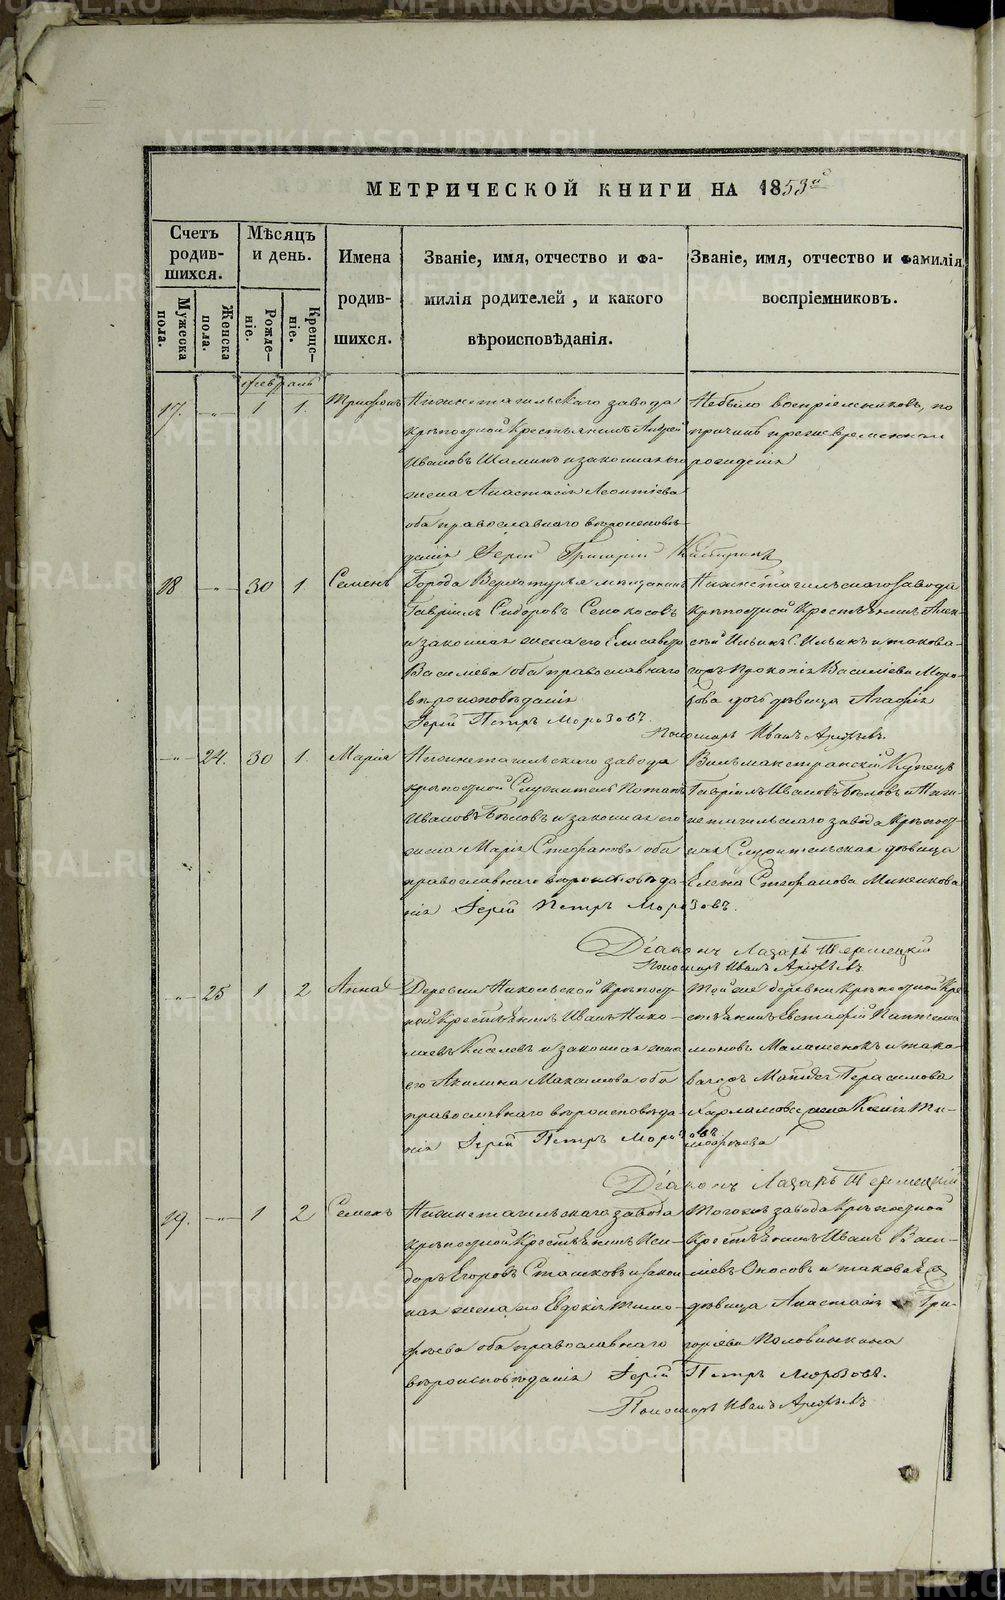 МЕТРИЧЕСКОЙ КНИГИ НА 1853й
Счетъ родив-шихся.
Мужеска пола.
Женска пола.
Мѣсяцъ и день.
Рожде-ніе.
Креще-ніе.
Имена родив-шихся.
Званіе, имя, отчество и фа-
милія родителей, и какого
вѣроисповѣданія.
Званіе, имя, отчество и фамилія
воспріемниковъ.
февраль
17. 1 1. Трифонъ
Нижнетагильскаго завода
крѣпостной крестьянинъ Андрей
Ивановъ Шаминъ и законная его
жена Анастасія Леонтіева
оба православнаго вѣроисповѣ-
данія Іерей Григорій
Небыло воспріемниковъ, по
причинѣ преждевременнаго
рожденія
18 30 1 Семенъ
Города Верхотурья мещанинъ
Гавріилъ Сидоровъ Сенокосовъ
и законная жена его Елисавета
Васильева оба православнаго
вѣроисповѣданія
Іерей Петръ Морозовъ.
Нижнетагильскаго завода
крѣпостной крестьянинъ Алек-
сѣй Ильинъ Ильинъ и такова-
гожъ Прокопія Васильева Моро-
зова дочь дѣвица Агафія
Пономарь Иванъ Арефьевъ.
24. 30 1. Марія
Нижнетагильскаго завода
крѣпостной Служитель Потапъ
Ивановъ Бѣловъ и законная его
жена Марія Стефанова оба
православнаго вѣроисповѣда-
нія Іерей Петръ Морозовъ.
Вильманстранскій Купецъ
Гавріилъ Ивановъ Бѣловъ и Ниж-
нетагильскаго завода Крѣпост-
ная Служительская дѣвица
Елена Стефанова Макенкова
Діаконъ Лазарь Термецкій
Пономарь Иванъ Арефьевъ.
25 1 2 Анна
Деревни Никольской Крѣпост-
ной Крестьянинъ Иванъ Нико-
лаевъ Киселевъ и законная жена
его Акилина Максимова оба
православнаго вѣроисповѣда-
нія Іерей Петръ Морозовъ
Той же деревни Крѣпостной Кре-
стьянинъ Евстафій Пантелеи-
моновъ Малашенокъ и тако-
вагожъ Матвея Герасимова
Харламова жена Ксенія Ти-
мофеева
Діаконъ Лазарь Термецкій
19. 1 2 Семенъ
Нижнетагильскаго завода
Крѣпостной Крестьянинъ Иси-
доръ Егоровъ Сташковъ и закон-
ная жена его Евдокія Тимо-
феева оба православнаго
вѣроисповѣданія Іерей Петръ Морозовъ.
Тогожъ завода Крѣпостной
Крестьянинъ Иванъ Васи-
ліевъ Оносовъ и таковая
дѣвица Анастасія Гри-
горіева Половинкина
Пономарь Иванъ Арефьевъ
METRIKI.GASO-URAL.RU